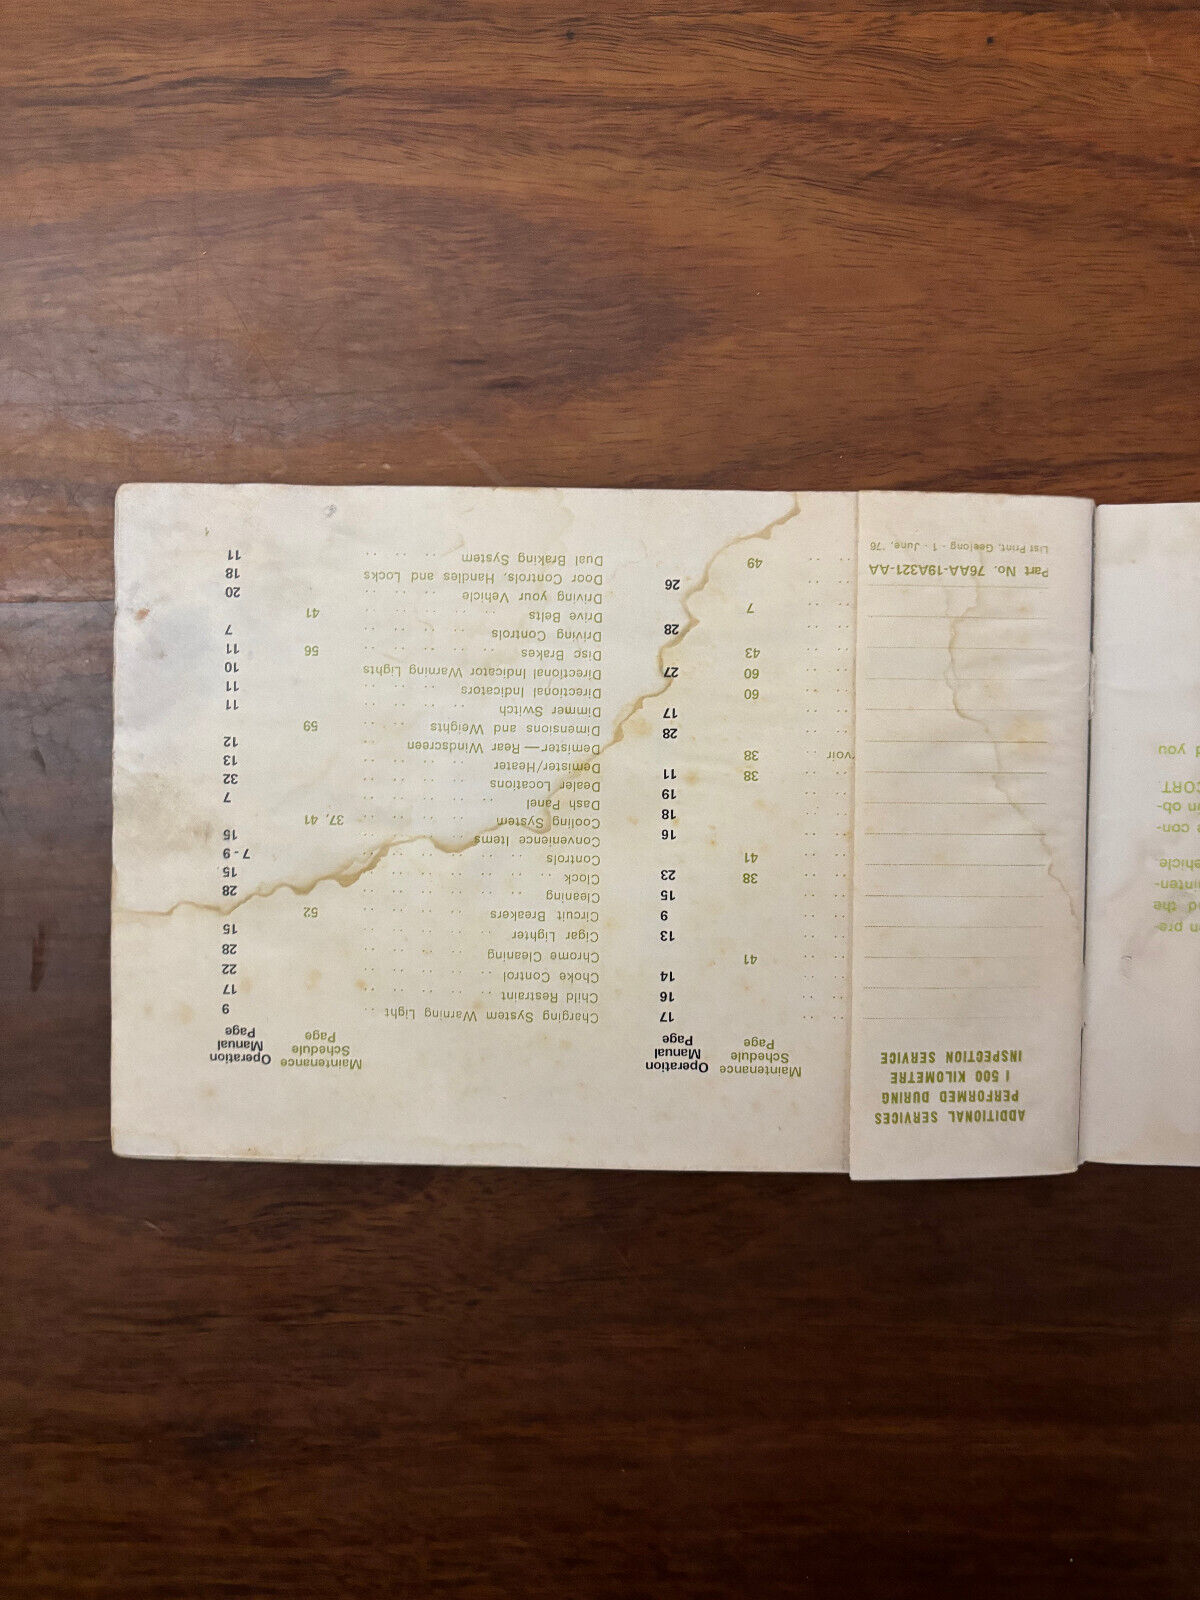 n pre-
nd the
ainten-
ehicle
t con-
on ob-
CORT
d you
ADDITIONAL SERVICES
PERFORMED DURING
1 500 KILOMETRE
INSPECTION SERVICE
Part No. 76AA-19A321-AA
List Print, Geelong - 1 - June, '76
Maintenance Schedule Page Operation Manual Page
.. .. 17
.. .. 16
.. .. 14
.. .. 41
.. .. 13
.. .. 9
.. .. 15
.. .. 38 23
.. .. 41
.. .. 16
.. .. 18
.. .. 19
.. .. 38 11
voir .. 38
.. .. 28
.. .. 17
.. .. 60
.. .. 60 27
.. .. 43
.. .. 28
.. .. 7
.. .. 26
.. .. 49
Maintenance Schedule Page Operation Manual Page
Charging System Warning Light .. 9
Child Restraint .. .. .. .. 17
Choke Control .. .. .. .. 22
Chrome Cleaning .. .. .. 28
Cigar Lighter .. .. .. .. 15
Circuit Breakers .. .. .. 52
Cleaning .. .. .. .. 28
Clock .. .. .. .. .. 15
Controls .. .. .. .. 7 - 9
Convenience Items .. .. .. 15
Cooling System .. .. .. 37, 41
Dash Panel .. .. .. .. 7
Dealer Locations .. .. .. 32
Demister/Heater .. .. .. 13
Demister—Rear Windscreen .. 12
Dimensions and Weights .. .. 59
Dimmer Switch .. .. .. 11
Directional Indicators .. .. 11
Directional Indicator Warning Lights 10
Disc Brakes .. .. .. .. 56 11
Driving Controls .. .. .. 7
Drive Belts .. .. .. .. 41
Driving your Vehicle .. .. .. 20
Door Controls, Handles and Locks 18
Dual Braking System .. .. .. 11